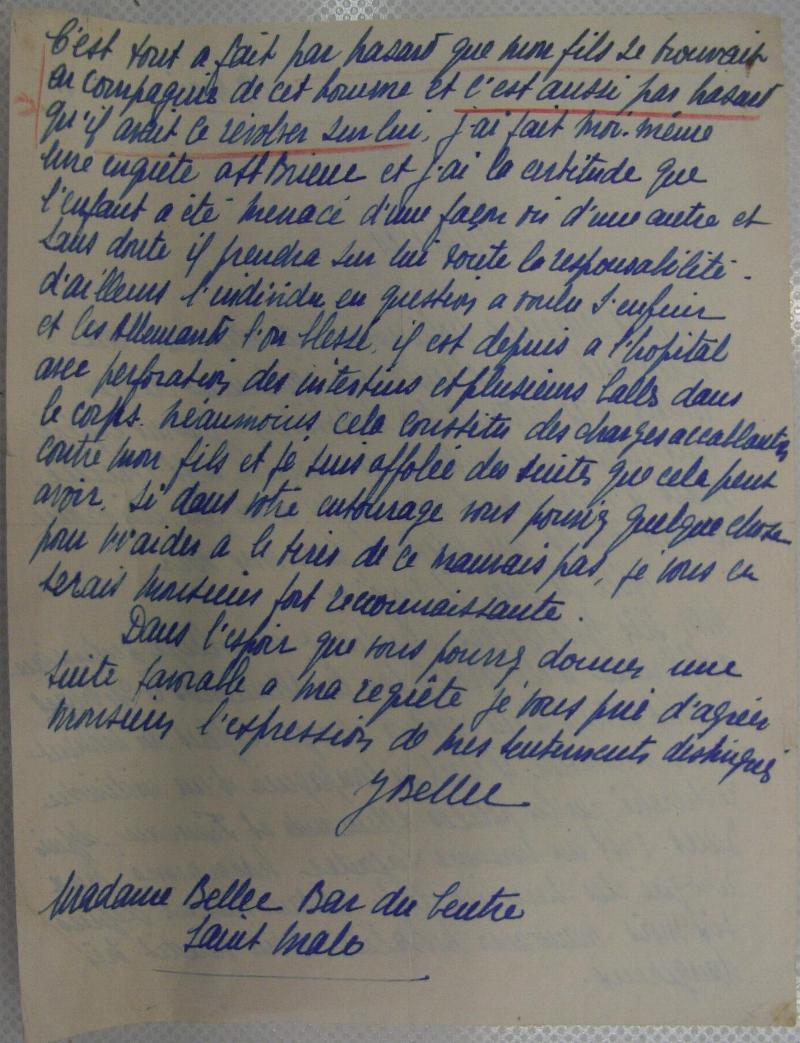 C'est tout a fait par hasard que mon fils se trouvait
en compagnie de cet homme et c'est aussi par hasard
qu'il avait ce révolver sur lui, j'ai fait moi-même
une enquête et j'ai la certitude que
l'enfant a été menacé d'une façon ou d'une autre et
sans doute il prendra sur lui toute la responsabilité -
d'ailleurs l'individu en question a voulu s'enfuir
et les Allemands l'on blessé, il est depuis a l'hopital
avec perforation des intestins et plusieurs balles dans
le corps. Néaumoins cela constitue des charges accablantes
contre mon fils et je suis affolée des suites que cela peut
avoir. Si dans votre entourage vous pouviez quelque chose
pour m'aider a le tirer de ce mauvais pas, je vous en
serais Monsieur fort reconnaissante.
Dans l'espoir que vous pourrez donner une
suite favorable a ma requête je vous prie d'agréer
Monsieur l'expression de mes sentiments distingués
Y Bellec
Madame Bellec Bar du Centre
Saint Malo